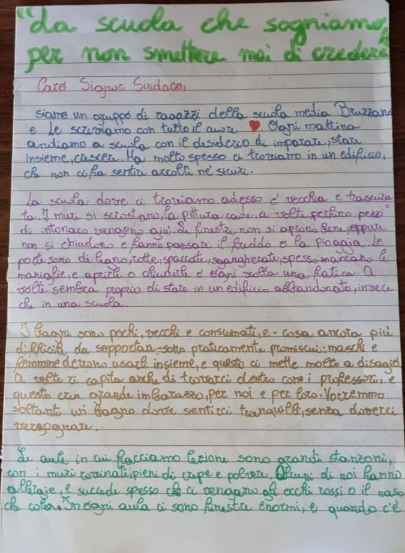 "La scuola che sogniamo,
per non smettere mai di credere"
Caro Signor Sindaco,
siamo un gruppo di ragazzi della scuola media Bruzzano
e Le scriviamo con tutto il cuore ❤. Ogni mattina
andiamo a scuola con il desiderio di imparare, stare
insieme, crescere. Ma molto spesso ci troviamo in un edificio,
che non ci fa sentire accolti né sicuri.
La scuola dove ci troviamo adesso è vecchia e trascura
ta. I muri si scrostano, la pittura cade, a volte perfino pezzi
di intonaco vengono giù. Le finestre non si aprono bene, oppure
non si chiudono e fanno passare il freddo e la pioggia. Le
porte sono di legno, rotte, spaccate, sgangherate, spesso mancano le
maniglie, e aprirle o chiuderle è ogni volta una fatica. A
volte sembra proprio di stare in un edificio abbandonato, invece
che in una scuola.
I bagni sono pochi, vecchi e consumati, e - cosa ancora più
difficile da sopportare - sono praticamente promiscui: maschi e
femmine devono usarli insieme, e questo ci mette molto a disagio.
A volte ci capita anche di trovarci dentro con i professori, e
questo crea grande imbarazzo, per noi e per loro. Vorremmo
soltanto un bagno dove sentirci tranquilli, senza doverci
vergognare.
Le aule in cui facciamo lezione sono grandi stanzoni,
con i muri rovinati, pieni di crepe e polvere. Alcuni di noi hanno
allergie, e succede spesso che ci vengano gli occhi rossi o il naso
che cola. In ogni aula ci sono finestre enormi, e quando c'è